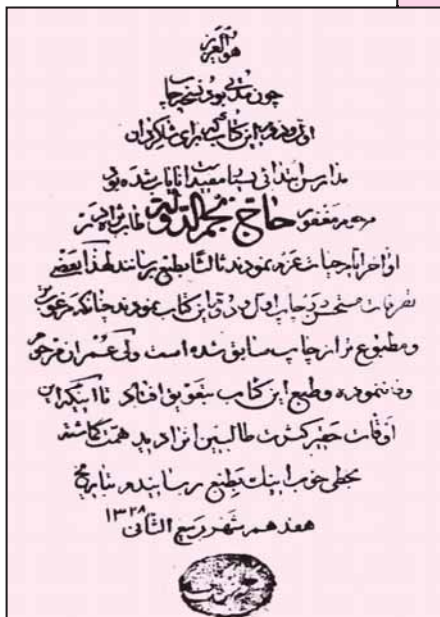 هو العزیز
چون مدتی بود نسخ چاپ
اول و دوم این کتاب که برای شاگردان
مدارس ابتدائی بسیار مفید است نایاب شده بود
مرحوم مغفور حاج نجم الدوله طاب ثراه در
اواخر ایام حیات عزم نمودند ثالثا بطبع برسانند لهذا بعضی
تصرفات مستحسن در چاپ اول و دوم این کتاب نمودند چنانکه مرغوب
و مطبوع تر از چاپ سابق شده است ولی عمر آن مرحوم
وفا ننموده و طبع این کتاب بتعویق افتاد تا اینکه در این
اوقات حقیر کثرت طالبین را دید همت گماشته
بخطی خوب اینک بطبع رسانید در بتاریخ
هفدهم شهر ربیع الثانی ۱۳۲۸